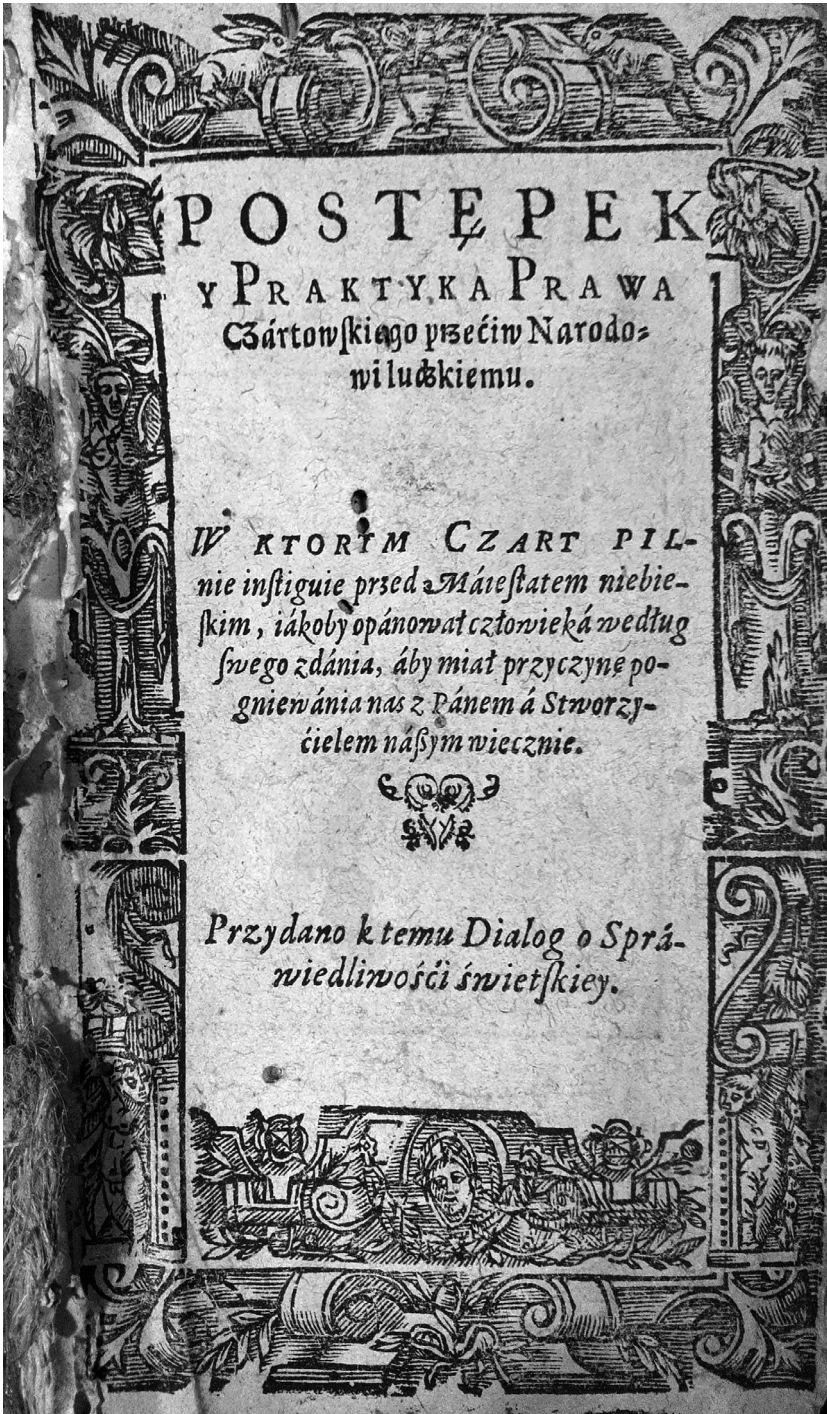 POSTĘPEK
Y PRAKTYKA PRAWA
Czártowſkiego przećiw Narodo⸗
wi ludzkiemu.
W KTORYM CZART PIL-
nie inſtiguie przed Máieſtatem niebie-
ſkim, iákoby opánował człowieká według
ſwego zdánia, áby miał przyczynę po-
gniewánia nas z Pánem á Stworzy-
ćielem náßym wiecznie.
Przydano k temu Dialog o Sprá-
wiedliwośći świetſkiey.